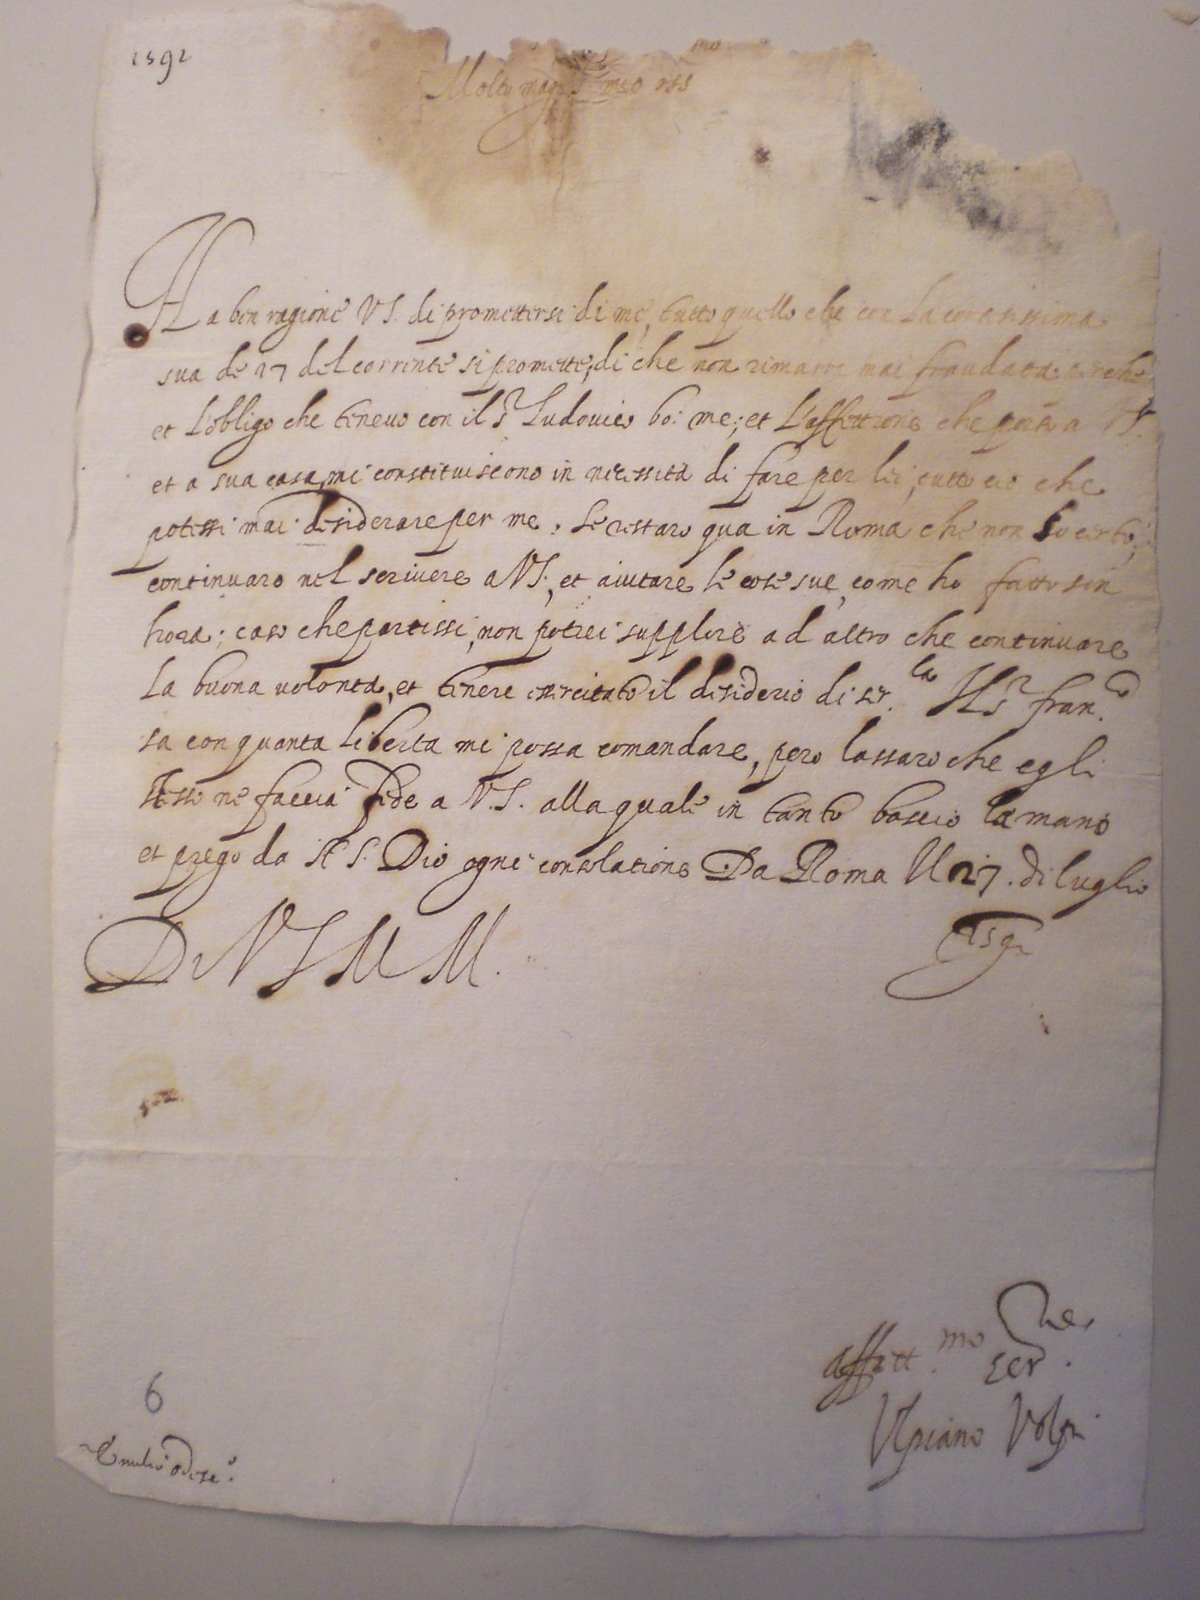 1592
Molto mag.co s.r mio oss.mo
Ha ben ragione VS. di promettersi di me, tutto quello che con la cortesissima
sua de 17 del corrente si promette, di che non rimarra mai fraudata; perche
et l'obligo che tenevo con il s.r Ludovico bo: me:; et l'affettione che porto a VS.
et a sua casa, mi constituiscono in necessità di fare per lei, tutto cio che
potessi mai desiderare per me. Se restaro qua in Roma che non so certo,
continuaro nel scrivere a VS., et aiutare le cose sue, come ho fatto sin
hora; caso che partissi, non potrei supplire ad altro che continuare
la buona volontà, et tenere esercitato il desiderio di ser.la Il s.r fran.co
sa con quanta liberta mi possa comandare, pero lassaro che egli
stesso ne faccia fede a V.S. alla quale in tanto bascio la mano
et prego da N.S. Dio ogni consolatione Da Roma li 27. di luglio
1592
Di VS M M.
affett.mo
ser.
Ulpiano Volpi
6